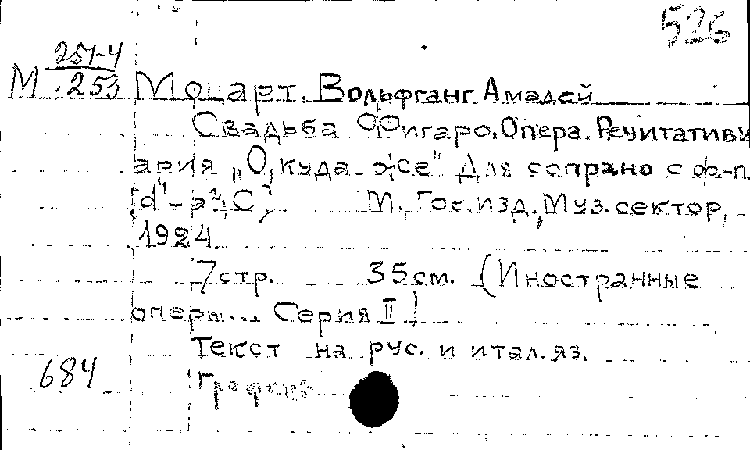 526
М 251-4/253 Моцарт, Вольфганг Амадей
Свадьба Фигаро. Опера. Речитатив и
ария „О, куда же“ Для сопрано с ф-п.
М., Гос. изд., Муз. сектор,
1924
7 стр. 35 см. (Иностранные
оперы... Серия II)
Текст на рус. и итал. яз.
684